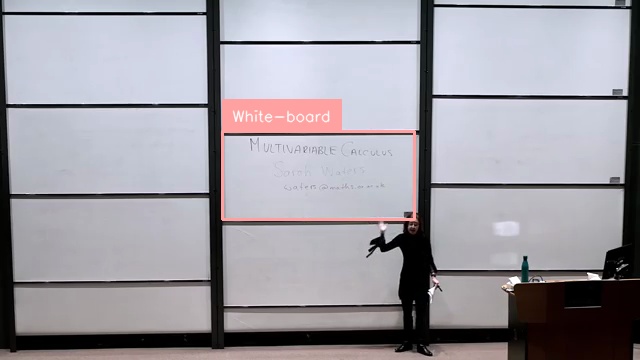 White-board
MULTIVARIABLE CALCULUS
Sarah Waters
waters@maths.ox.ac.uk